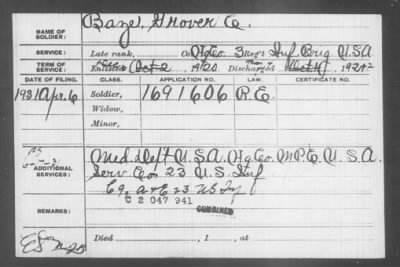 NAME OF SOLDIER: Bazel, Grover C.
SERVICE: Late rank, Co Hq Co. 3 Reg't Inf Brig U.S.A
TERM OF SERVICE: Enlisted Oct 2 1920 Discharged 1924
DATE OF FILING. CLASS. APPLICATION NO. LAW. CERTIFICATE NO.
1931 Apr. 6 Soldier, 1691606 R.E.
Widow,
Minor,
ADDITIONAL SERVICES: Med. Dept U.S.A. Hq Co. M.P.C. U.S.A.
Serv. Co 23 U.S. Inf
Co. a & E 23 US Inf
C 2 047 941
REMARKS: COMBINED
Died , 1 , at